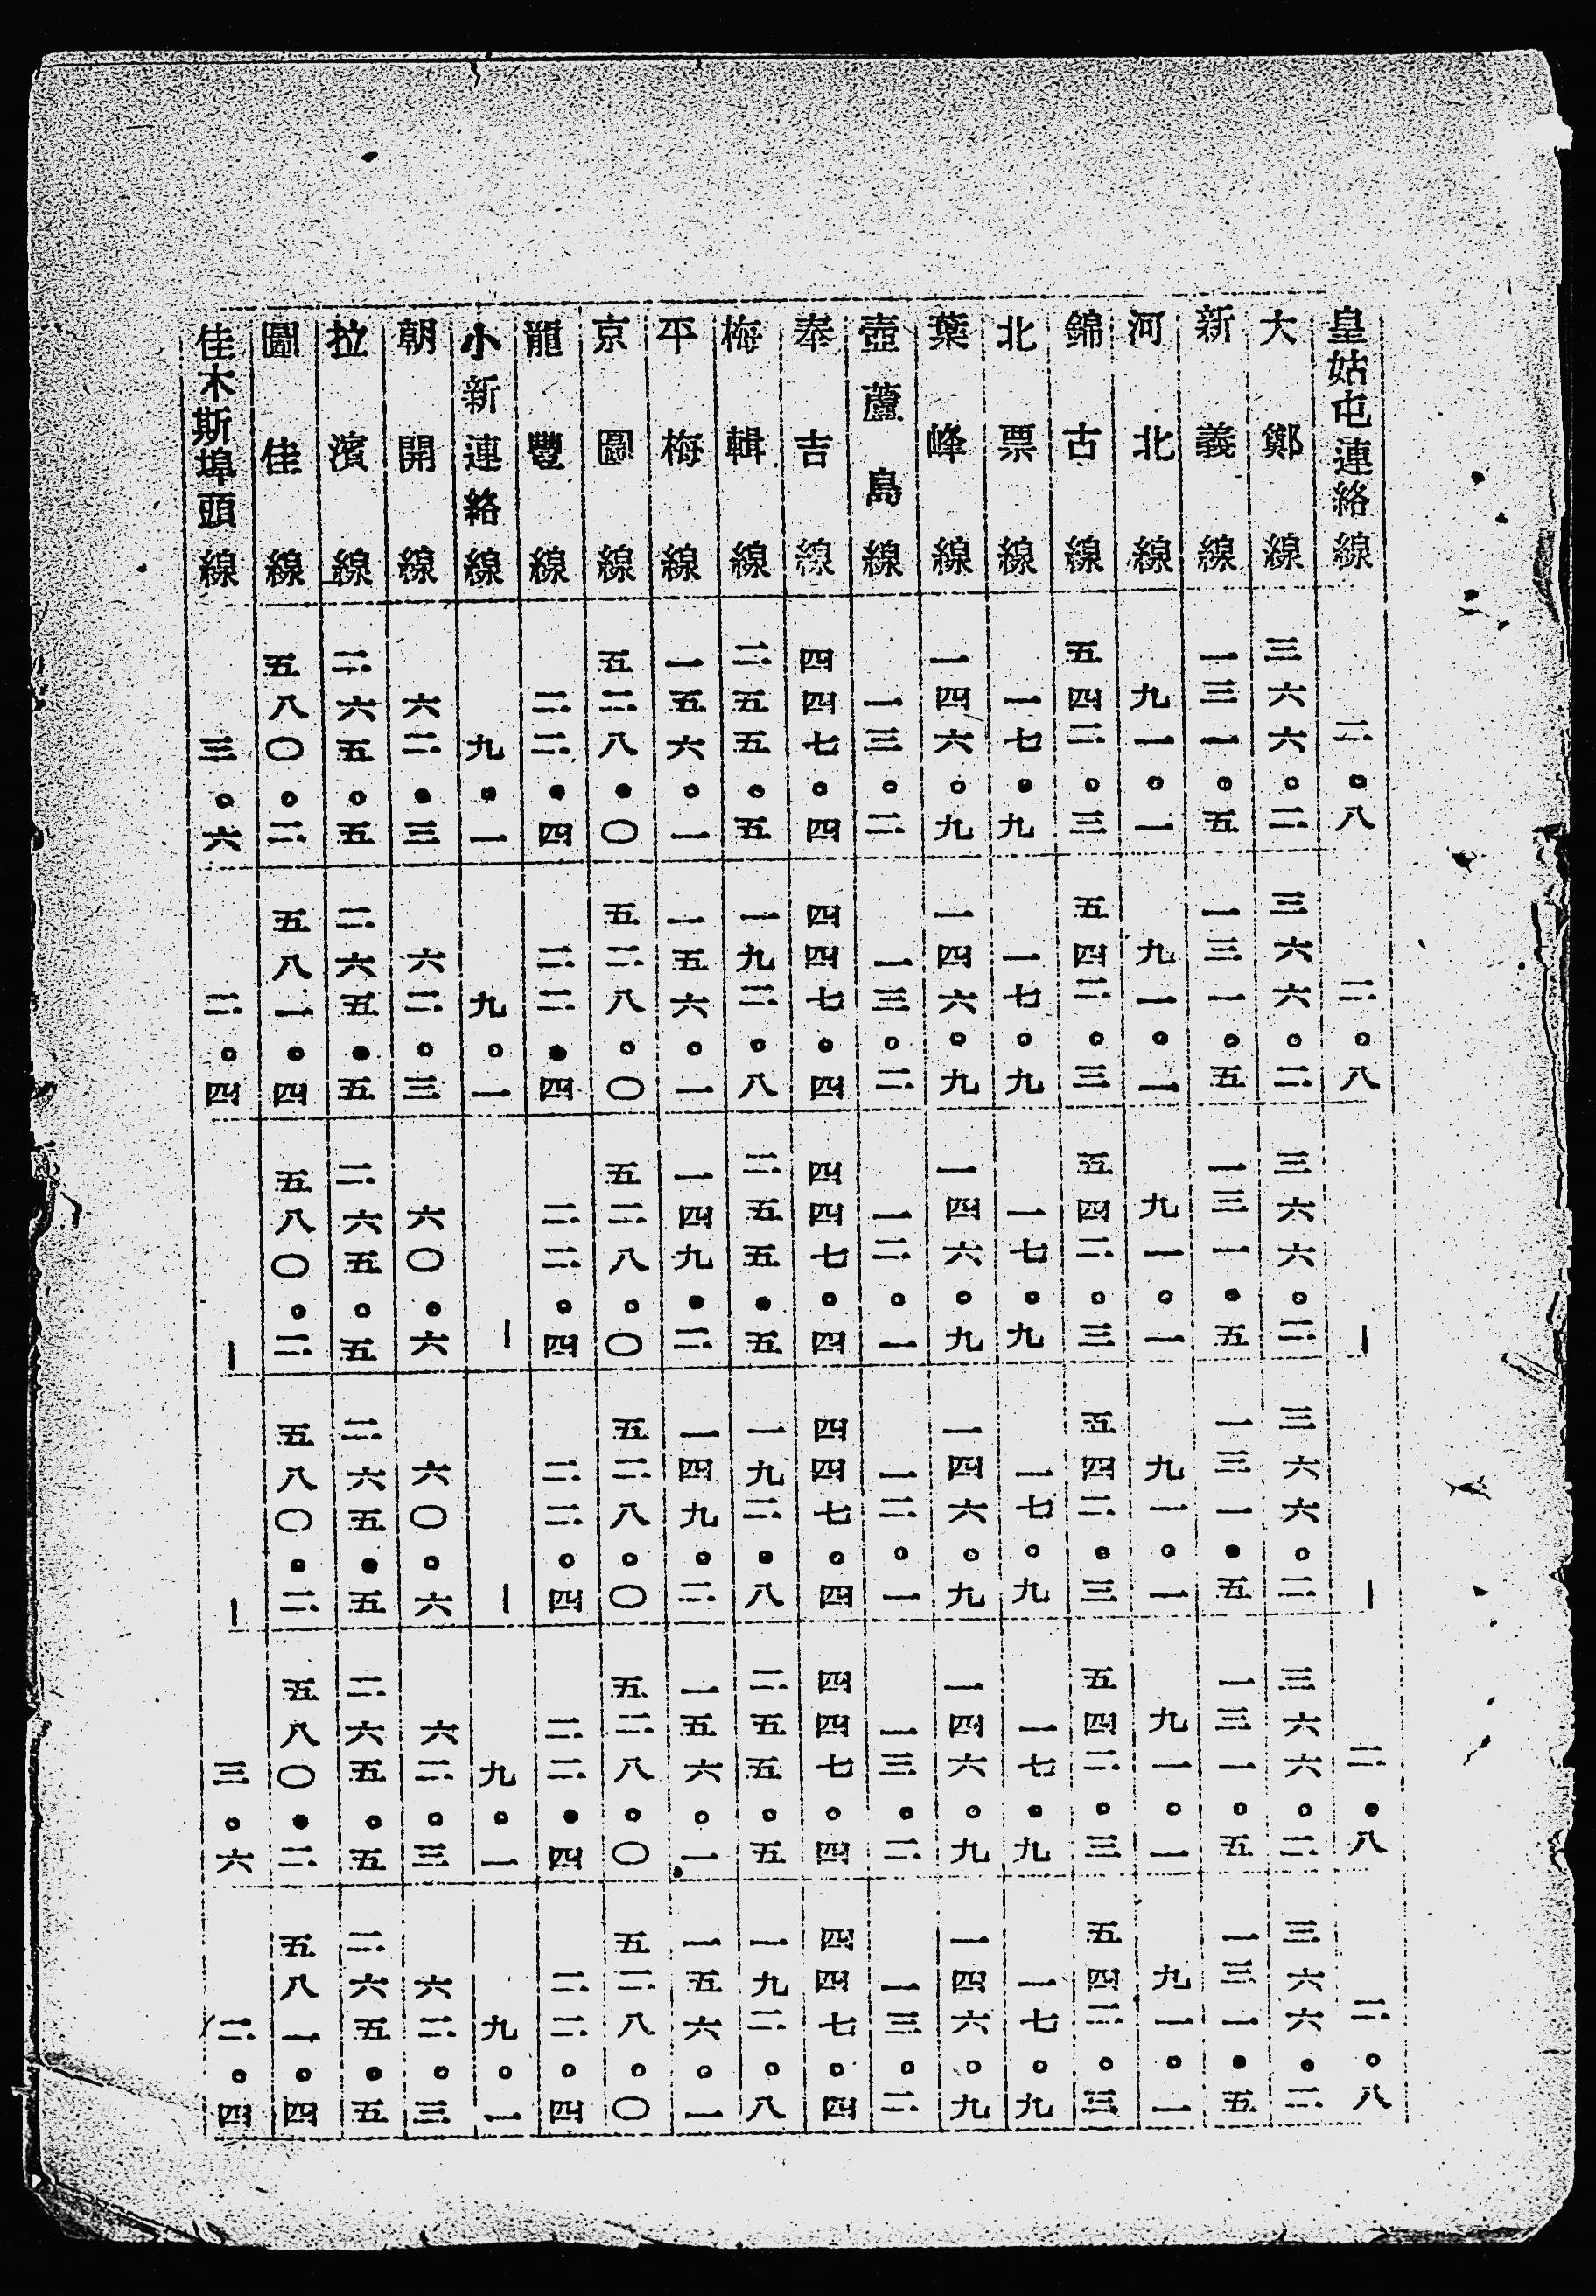 皇姑屯連絡線 二。八 二。八 — — 二。八 二。八
大鄭線 三六六。二 三六六。二 三六六。二 三六六。二 三六六。二 三六六。二
新義線 一三一。五 一三一。五 一三一。五 一三一。五 一三一。五 一三一。五
河北線 九一。一 九一。一 九一。一 九一。一 九一。一 九一。一
錦古線 五四二。三 五四二。三 五四二。三 五四二。三 五四二。三 五四二。三
北票線 一七。九 一七。九 一七。九 一七。九 一七。九 一七。九
葉峰線 一四六。九 一四六。九 一四六。九 一四六。九 一四六。九 一四六。九
壺蘆島線 一三。二 一三。二 一二。一 一二。一 一三。二 一三。二
奉吉線 四四七。四 四四七。四 四四七。四 四四七。四 四四七。四 四四七。四
梅輯線 二五五。五 一九二。八 二五五。五 一九二。八 二五五。五 一九二。八
平梅線 一五六。一 一五六。一 一四九。二 一四九。二 一五六。一 一五六。一
京圖線 五二八。〇 五二八。〇 五二八。〇 五二八。〇 五二八。〇 五二八。〇
龍豐線 二二。四 二二。四 二二。四 二二。四 二二。四 二二。四
小新連絡線 九。一 九。一 — — 九。一 九。一
朝開線 六二。三 六二。三 六〇。六 六〇。六 六二。三 六二。三
拉濱線 二六五。五 二六五。五 二六五。五 二六五。五 二六五。五 二六五。五
圖佳線 五八〇。二 五八一。四 五八〇。二 五八〇。二 五八〇。二 五八一。四
佳木斯埠頭線 三。六 二。四 — — 三。六 二。四